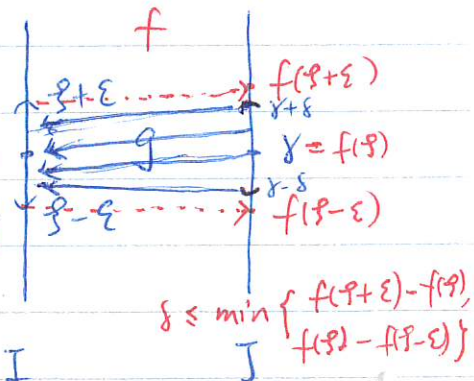 f
ξ+ε f(ξ+ε)
γ+δ
g γ = f(ξ)
γ-δ
ξ-ε f(ξ-ε)
δ ≤ min { f(ξ+ε)-f(ξ),
f(ξ)-f(ξ-ε) }
I J